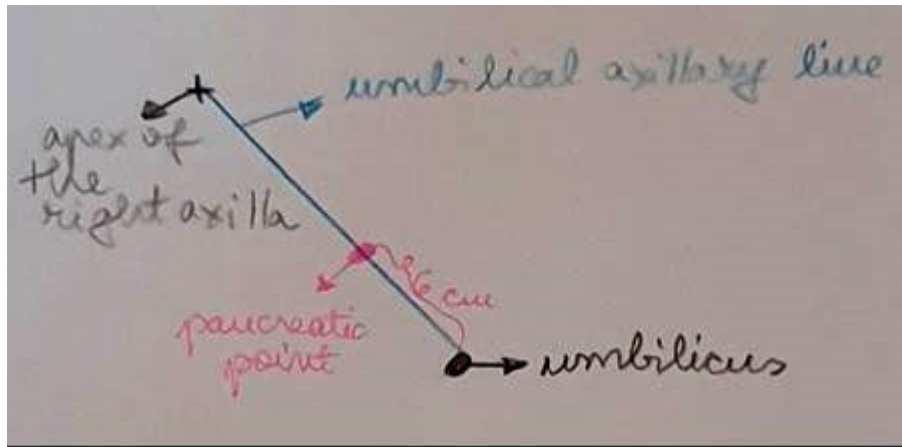 umbilical axillary line
apex of
the
right axilla
6 cm
pancreatic
point
umbilicus